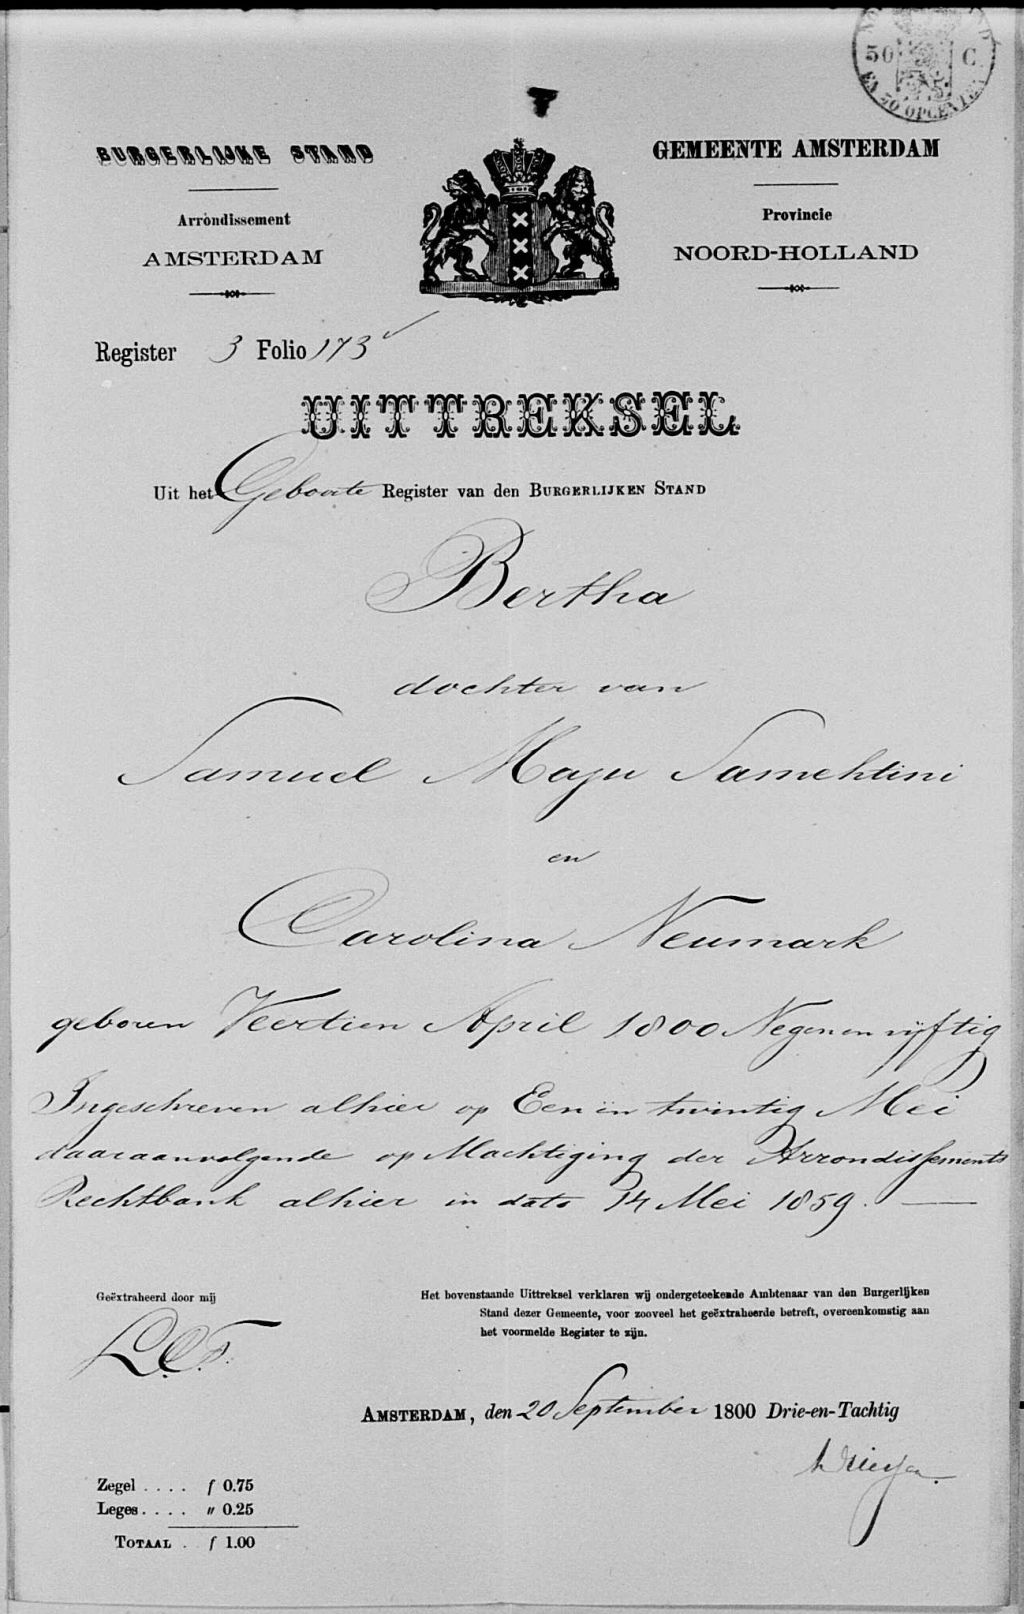 50 C.
EN 50 OPCENTEN
BURGERLIJKE STAND
GEMEENTE AMSTERDAM
Arrondissement
Provincie
AMSTERDAM
NOORD-HOLLAND
Register 3 Folio 173v
UITTREKSEL
Uit het Geboorte Register van den BURGERLIJKEN STAND
Bertha
dochter van
Samuel Mayer Samehtini
en
Carolina Neumark
geboren Veertien April 1800 Negen en vijftig
Ingeschreven alhier op Een en twintig Mei
daaraanvolgende op Machtiging der Arrondissements
Rechtbank alhier in dato 14 Mei 1859.
Geëxtraheerd door mij
Het bovenstaande Uittreksel verklaren wij ondergeteekende Ambtenaar van den Burgerlijken
Stand dezer Gemeente, voor zooveel het geëxtraheerde betreft, overeenkomstig aan
het voormelde Register te zijn.
AMSTERDAM, den 20 September 1800 Drie-en-Tachtig
Zegel . . . . f 0.75
Leges . . . . " 0.25
TOTAAL . f 1.00